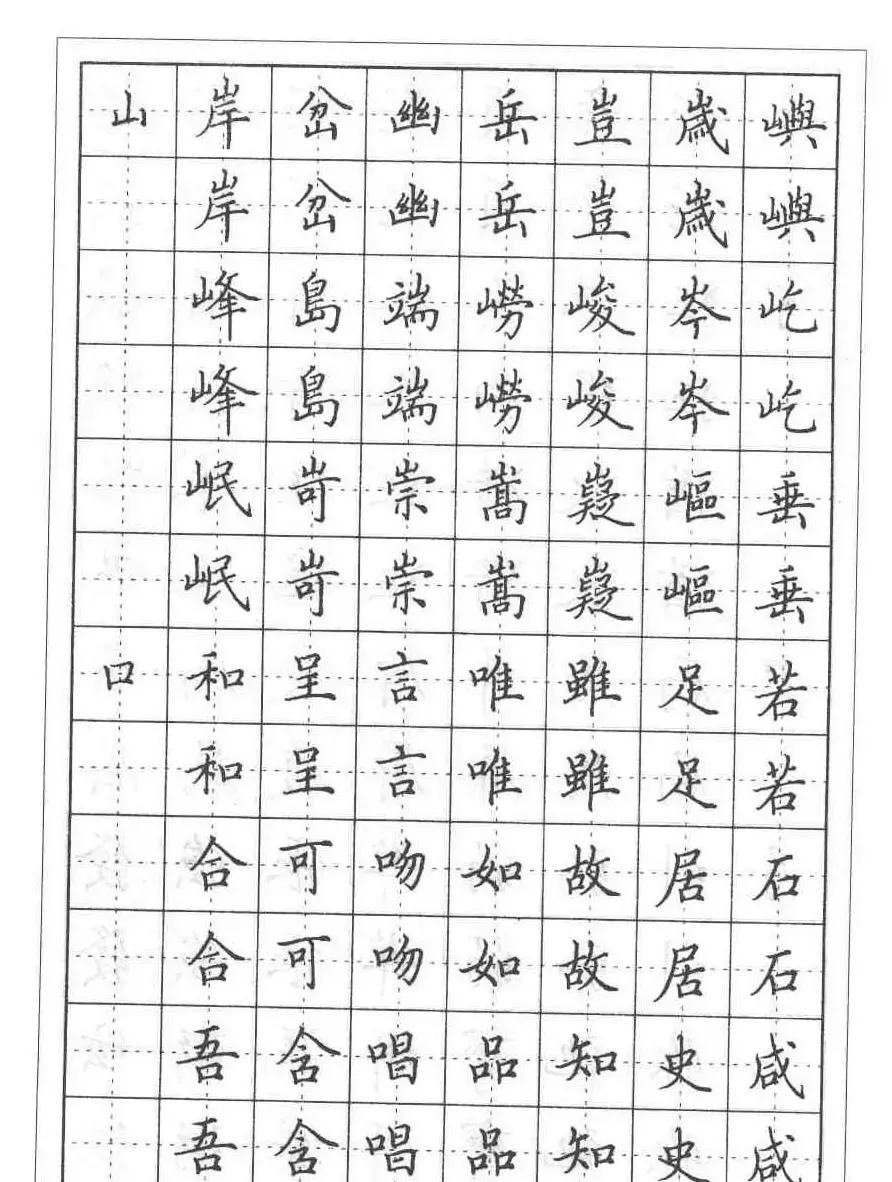 山岸岔幽岳豈歲嶼
岸岔幽岳豈歲嶼
峰島端嶗峻岑屹
峰島端嶗峻岑屹
岷岢崇嵩嶷嶇垂
岷岢崇嵩嶷嶇垂
口和呈言唯雖足若
和呈言唯雖足若
合可吻如故居石
合可吻如故居石
吾含唱品知史咸
吾含唱品知史咸